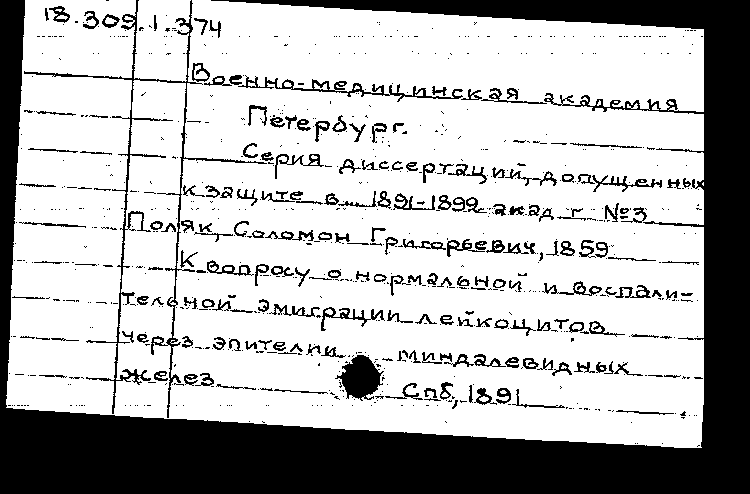 18.309.1.374
Военно-медицинская академия
Петербург.
Серия диссертаций, допущенных
к защите в... 1891-1892 акад г №3
Поляк, Соломон Григорьевич, 1859
К вопросу о нормальной и воспали-
тельной эмиграции лейкоцитов
через эпителии миндалевидных
желез. Спб, 1891.